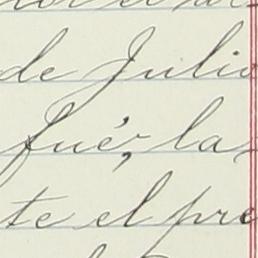 de Julio
fué, la
te el pre